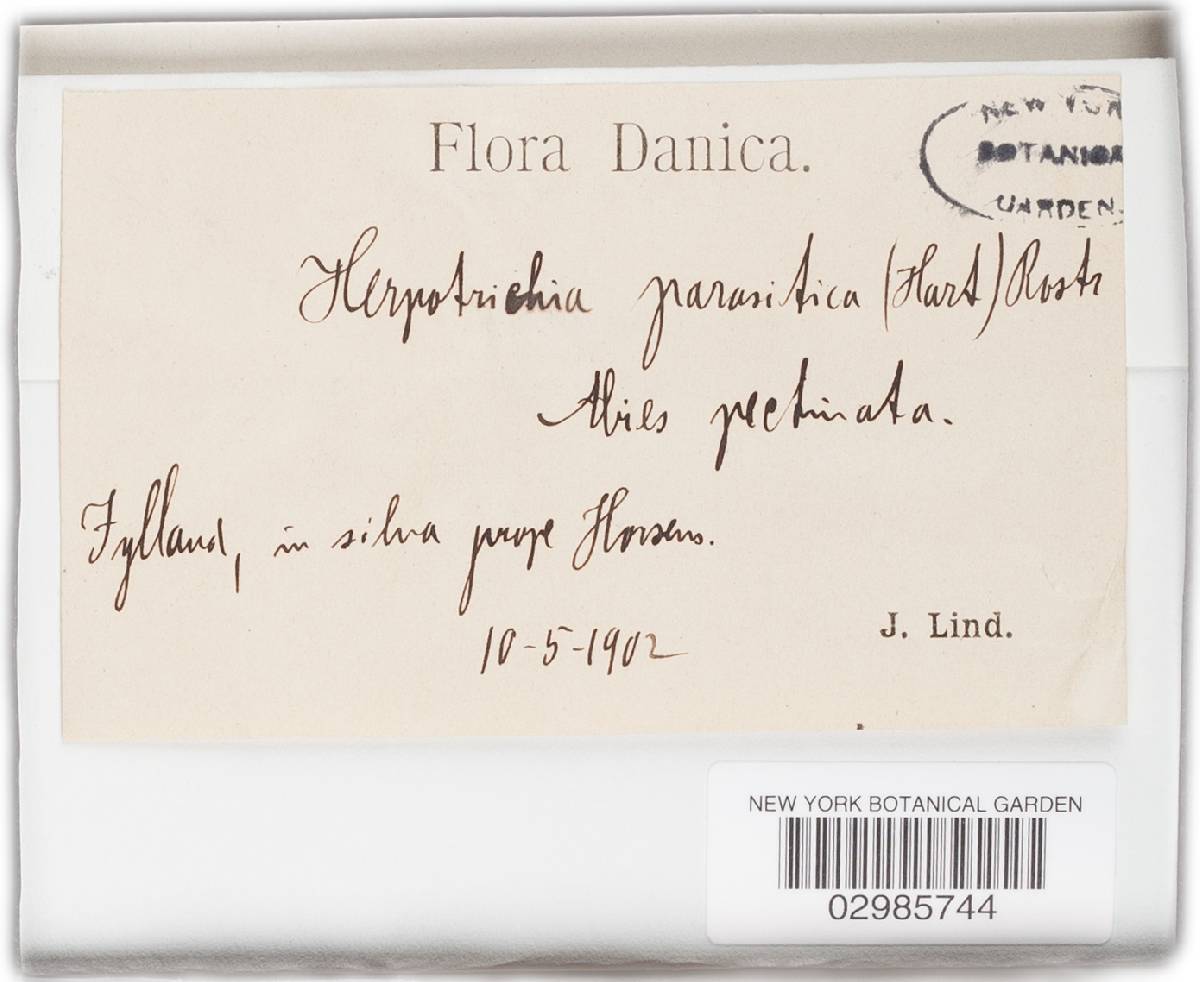 Flora Danica.
NEW YOR
BOTANICA
GARDEN.
Herpotrichia parasitica (Hart) Rostr
Abies pectinata.
Jylland, in silva prope Horsens.
10-5-1902
J. Lind.
NEW YORK BOTANICAL GARDEN
02985744